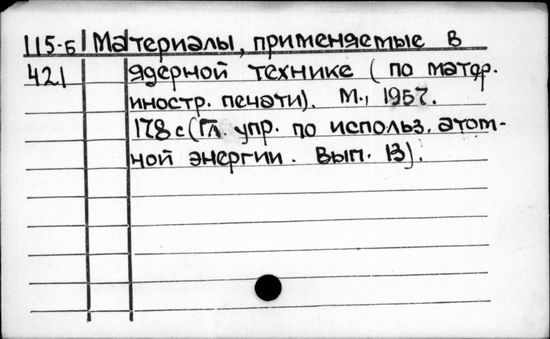 115-Б Материалы, применяемые в
421 ядерной технике (по матер.
иностр. печати). М., 1957.
178 с (Гл. упр. по использ. атом-
ной энергии. Вып. 13).